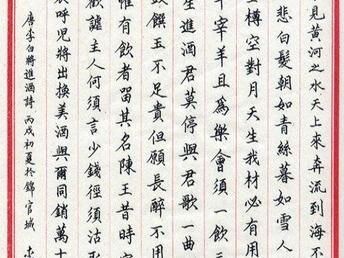 見黃河之水天上來奔流到海不
悲白髮朝如青絲暮如雪人
樽空對月天生我材必有用
宰羊且為樂會須一飲三
生進酒君莫停與君歌一曲
鼓饌玉不足貴但願長醉不用
惟有飲者留其名陳王昔時
歡謔主人何須言少錢徑須沽
呼兒將出換美酒與爾同銷萬
唐李白將進酒詩 丙戌初夏於錦官城